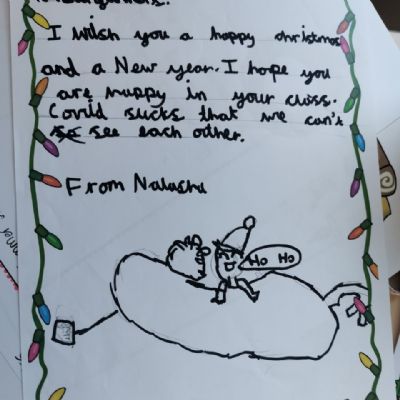 I wish you a happy christmas
and a New year. I hope you
are muppy in your cluss.
Covid sucks that we can't
see each other.
From Natasha
Ho Ho